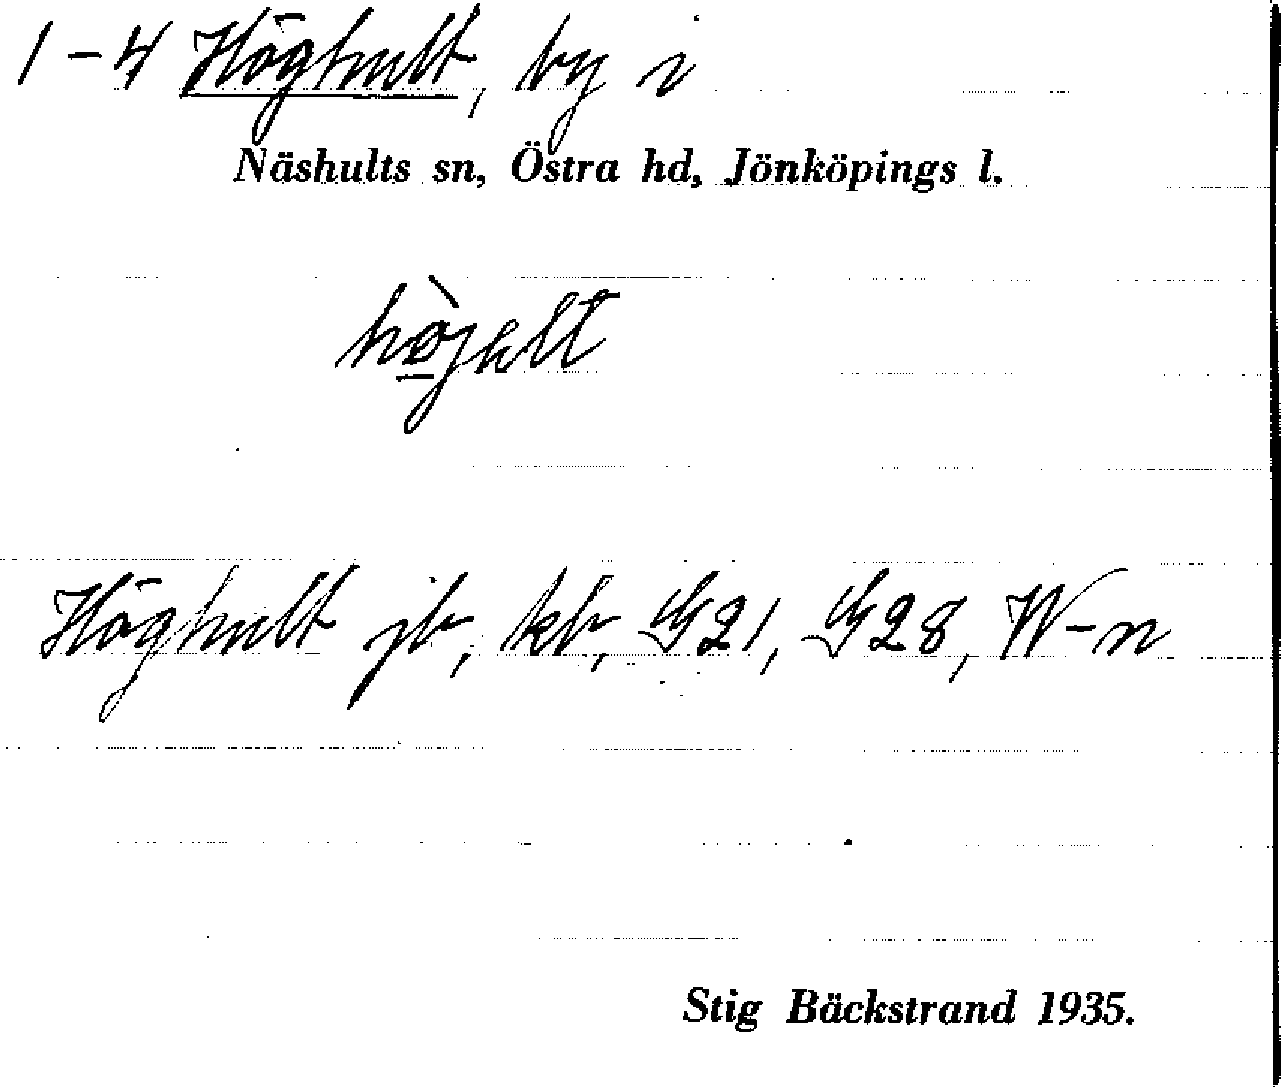 1-4 Höghult, by i
Näshults sn, Östra hd, Jönköpings l.
hø̀gklt
Höghult jb, kb, G21, G28, W-n
Stig Bäckstrand 1935.